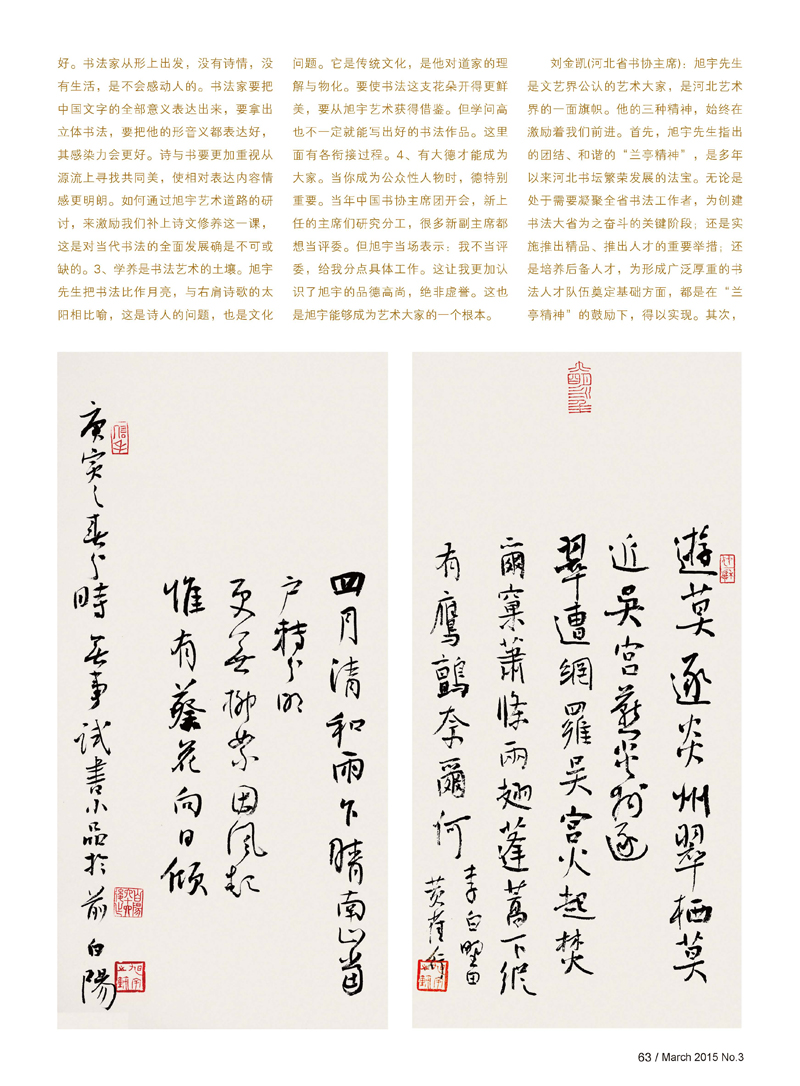 好。书法家从形上出发，没有诗情，没
有生活，是不会感动人的。书法家要把
中国文字的全部意义表达出来，要拿出
立体书法，要把他的形音义都表达好，
其感染力会更好。诗与书要更加重视从
源流上寻找共同美，使相对表达内容情
感更明朗。如何通过旭宇艺术道路的研
讨，来激励我们补上诗文修养这一课，
这是对当代书法的全面发展确是不可或
缺的。3、学养是书法艺术的土壤。旭宇
先生把书法比作月亮，与右肩诗歌的太
阳相比喻，这是诗人的问题，也是文化
问题。它是传统文化，是他对道家的理
解与物化。要使书法这支花朵开得更鲜
美，要从旭宇艺术获得借鉴。但学问高
也不一定就能写出好的书法作品。这里
面有各衔接过程。4、有大德才能成为
大家。当你成为公众性人物时，德特别
重要。当年中国书协主席团开会，新上
任的主席们研究分工，很多新副主席都
想当评委。但旭宇当场表示：我不当评
委，给我分点具体工作。这让我更加认
识了旭宇的品德高尚，绝非虚誉。这也
是旭宇能够成为艺术大家的一个根本。
刘金凯(河北省书协主席)：旭宇先生
是文艺界公认的艺术大家，是河北艺术
界的一面旗帜。他的三种精神，始终在
激励着我们前进。首先，旭宇先生指出
的团结、和谐的“兰亭精神”，是多年
以来河北书坛繁荣发展的法宝。无论是
处于需要凝聚全省书法工作者，为创建
书法大省为之奋斗的关键阶段；还是实
施推出精品、推出人才的重要举措；还
是培养后备人才，为形成广泛厚重的书
法人才队伍奠定基础方面，都是在“兰
亭精神”的鼓励下，得以实现。其次，
四月清和雨乍晴南山當
户轉分明
更無柳絮因風起
惟有葵花向日傾
庚寅之春分時無事試書小品於前白陽
遊莫逐炎州翠栖莫
近吳宮燕炎州逐
翠遭網羅吳宮火起焚
爾窠蕭條兩翅蓬蒿下縱
有鷹鸇奈爾何
李白野田
黃雀行
63 / March 2015 No.3